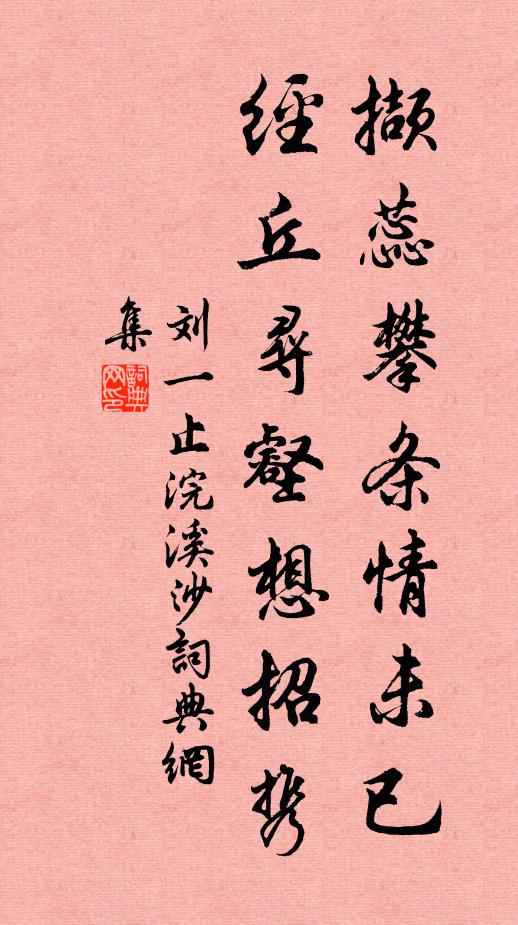 撷蕊攀条情未已
经丘寻壑想招携
刘一止浣溪沙詞典網
集
詞典网印